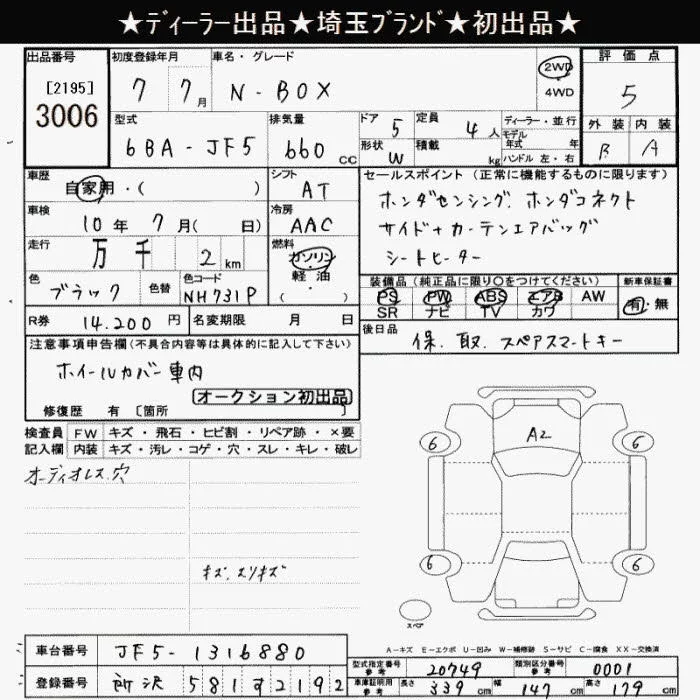 ★ディーラー出品★埼玉ブランド★初出品★
出品番号 初度登録年月 車名・グレード 2WD 4WD 評価点
[2195] 3006 7 7月 N-BOX 5
型式 排気量 ドア 定員 ディーラー・並行 外装 内装
6BA-JF5 660 CC 5 4人 モデル年式 年
形状 W 積載 kg ハンドル 左・右 B A
車歴 自家用・( ) シフト AT セールスポイント(正常に機能するものに限ります)
車検 10年 7月( 日) 冷房 AAC ホンダセンシング、ホンダコネクト
サイド+カーテンエアバッグ
シートヒーター
走行 万 千 2 km 燃料 ガソリン・軽油・( )
色 ブラック 色替 色コード NH731P
装備品(純正品に限り○をつけてください) 新車保証書
PS PW ABS エアB AW 有・無
SR ナビ TV カワ
R券 14.200円 名変期限 月 日 後日品 保、取、スペアスマートキー
注意事項申告欄(不具合内容等は具体的に記入して下さい)
ホイールカバー車内
オークション初出品
修復歴 有 [箇所 ]
検査員記入欄 FW キズ・飛石・ヒビ割・リペア跡・×要
内装 キズ・汚レ・コゲ・穴・スレ・キレ・破レ
オーディオレス穴
キズ、スリキズ
A2
6 6
6 6
スペア
A-キズ E-エクボ U-凹み W-補修跡 S-サビ C-腐食 XX-交換済
車台番号 JF5-1316880
型式指定番号 参考 20749 類別区分番号 参考 0001
登録番号 所沢 581す2192
車庫証明用 参考 長さ 339cm 幅 147cm 高さ 179cm